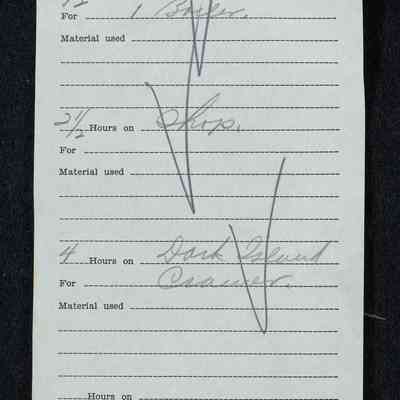 1/2
For 1 Boiler.
Material used
2 1/2 Hours on Shop.
For
Material used
4 Hours on Dark Island
For Cramer.
Material used
Hours on